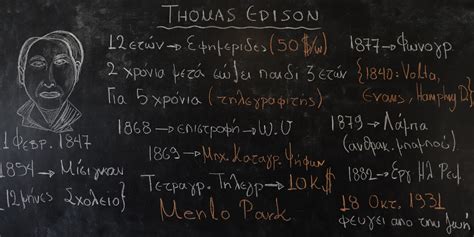 THOMAS EDISON
12 ετών → Εφημερίδες (50 $/w)
2 χρόνια μετά σώζει παιδί 3 ετών
Για 5 χρόνια (τηλεγραφητής)
1868 → επιστροφή → W.U
1869 → Μηχ. Καταγρ. Ψήφων
Τετραγρ. Τηλεγρ → 10K$
Menlo Park
1 Φεβρ. 1847
1854 → Μίσιγκαν
(12μηνες Σχολείο)
1877 → Φωνογρ.
{1840: Volta,
Evans, Humphry D.}
1879 → Λάμπα
(ανθρακ. μπαμπού)
1882 → Εργ Ηλ Ρεύ
18 Οκτ. 1931
φεύγει από την ζωή